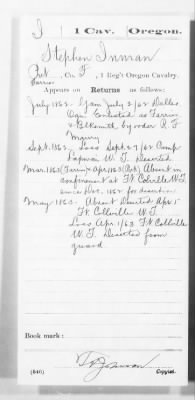 I 1 Cav. Oregon.
Stephen Inman
Pvt, Co. F, 1 Reg't Oregon Cavalry.
Farrier
Appears on Returns as follows:
July 1862. Gain July 3/62 Dallas
Ogn Enlisted as Farrier
& Blksmith by order R. F.
Maury
Sept. 1862. Loss Sept 27/62 Camp
W.T. Deserted
Mar. 1863 (Farrier) & Apr. 1863 (Pvt) Absent in
confinement at Ft Colville W.T.
since Dec. 1862 for desertion
May 1863. Absent Deserted Apr 1
Ft. Collville W.T.
Loss Apr. 1/63 Ft Collville
W.T. Deserted from
guard
Book mark:
(546) Copyist.